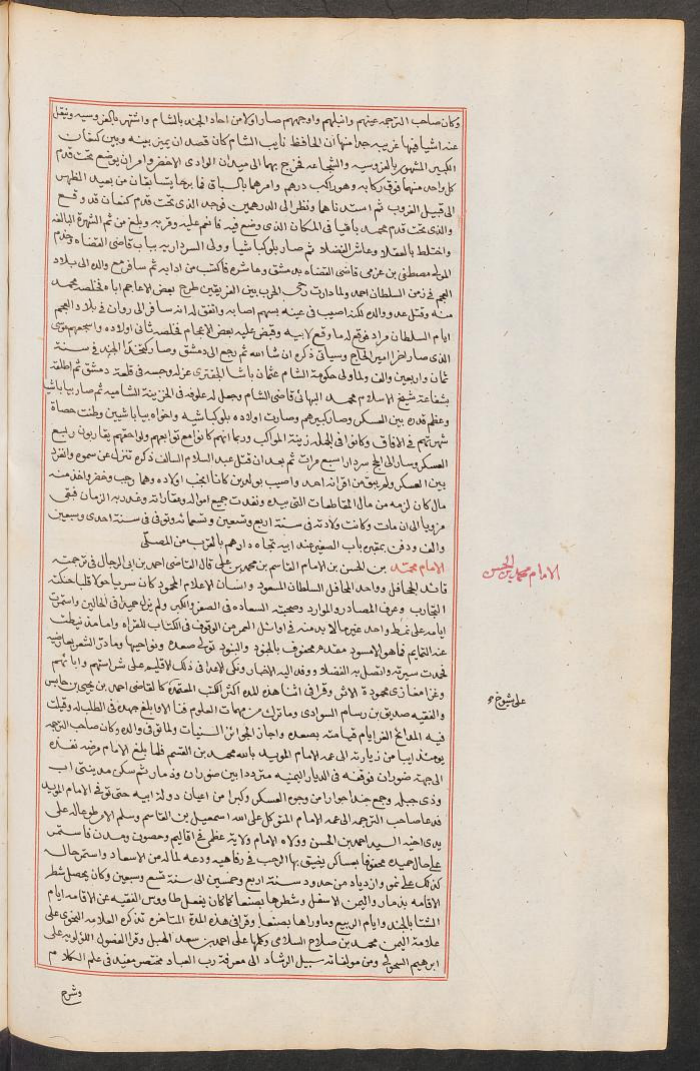 وكان صاحب الترجمة عينهم وانبلهم واوجههم صار اولا من احاد الجند بالشام واشتهر بالفروسيه وينقل
عنه اشيا فيها غريب جدا منها أن الحافظ نايب الشام كان قصد ان يميز بينه وبين كنعان
الكبير المشهور بالفروسيه والشجاعه فخرج بهما الى ميدان الوادى الاخضر وامر ان يوضع تحت قدم
كل واحد منهما فوق ركابه وهو راكب درهم وامرهما بالسباق فما برحا يتسابقان من بعيد الظهر
الى قبيل الغروب ثم استدناهما ونظر الى الدرهمين فوجد الذى تحت قدم كنعان قد وقع
والذى تحت قدم محمد باقيا فى المكان الذى وضع فيه فانعم عليه وقربه وبلغ من ثم الشهرة البالغه
واختلط بالعقلا وعاش الفضلا ثم صار بلوكباشيا وولى السرداريه بباب قاضى القضاه وخدم
المولى مصطفى بن عزمى قاضى القضاه بدمشق وعاشره فاكتسب من ادابه ثم سافر مع والده الى بلاد
العجم فى زمن السلطان احمد ولما دارت رحى الحرب بين الفريقين طرح بعض الاعاجم اباه فخلصه محمد
منه وقتل عدو والده لكنه اصيب فى عينه بسهم اصابه واتفق له انه سافر الى روان فى بلاد العجم
ايام السلطان مراد فوقع له ما وقع لابيه وقبض عليه بعض الاعجام فخلصه ثانى اولاده واسجعهم موسى
الذى صار اخرا امير الحاج وسياتى ذكره ان شا الله ثم رجع الى دمشق وصار كيخدا الجند فى سنة
ثمان واربعين والف ولما ولى حكومة الشام عثمان باشا الجفترى عزله وحبسه فى قلعة دمشق ثم اطلقه
بشفاعة شيخ الاسلام محمد البهائى قاضى الشام وجعل له علوفه فى الخزينة الشاميه ثم صار بياباشيا
وعظم قدره بين العسكر وصار كبيرهم وصارت اولاده بلوكباشيه واخواه بياباشيين وطنت حصاة
شهرتهم فى الافاق وكانوا فى الجمله زينة المواكب وربما انهم كانوا مع توابعهم ولواحقهم يقاربون ربع
العسكر وسار الى الحج سردارا سبع مرات ثم بعد ان قتل عبد السلام السالف ذكره تنزل عن سموه وانفرد
بين العسكر ولم يبق من اقرانه احد واصيب بولدين كانا انجب اولاده وهما رجب وخضر واخذ منه
مال كان لزمه من مال المقاطعات التى بيده ونفدت جميع امواله وعقاراته وغدر به الزمان فبقى
مزويا الى ان مات وكانت ولادته فى سنة اربع وتسعين وتسعمائه وتوفى فى سنة احدى وسبعين
والف ودفن بمقبرة باب الصغير عند ابيه تجاه دارهم بالقرب من المصلى
الامام محمد بن الحسن بن الامام القاسم بن محمد بن على قال القاضى احمد بن ابى الرجال فى ترجمته
قائد الجحافل وواحد المحافل السلطان المسعود وانسان الاعلام المحمود كان سريا حولا قلبا حنكته
التجارب وعرف المصادر والموارد وصحبته السعاده فى الصغر والكبر ولم يزل حميدا فى الحالين واستمرت
ايامه على نمط واحد غير ما لا بد منه فى اوائل العمر من الوقوف فى الكتاب للقراه واما منذ نيطت
عنه التمايم فما هو الاسود مقدم محفوف بالجنود والبنود تولى صعده ونواحيها وما دق الشعر بعارضيه
فحمدت سيرته واتصل به الفضلا ووفد اليه الاخيار ونكى الاعدا فى ذلك الاقليم على شراستهم وابائهم
وغزا مغازى محمودة الاثر وقرا فى اثنا هذه المده اكثر الكتب المعتمدة كالقاضى احمد بن يحيى بن حابس
والفقيه صديق بن رسام السوادى وما ترك من مهمات العلوم فنا الا وابلغ جهده فى الطلب له وقيلت
فيه المدائح الغر ايام قيامته بصعده واجاز الجوائز السنيات ولما توفى والده وكان صاحب الترجمة
يومئذ ايبا من زيارته الى عمه الامام المويد بالله محمد بن القسم فلما بلغ الامام موته نفذه
الى جهة ضوران فوقفه فى الديار اليمنيه مترددا بين ضوران وذمار ثم سكن مدينتى اب
وذى جبله وجمع جندا جرارا من وجوه العسكر وكبرا من اعيان دولة ابيه حتى توفى الامام المويد
فدعا صاحب الترجمة الى عمه الامام المتوكل على الله اسمعيل بن القاسم وسلم الامر طوعا له على
يدى اخيه السيد احمد بن الحسن وولاه الامام ولاية عظمى فى اقاليم وحصون ومدن فاستمر
على حال حميده محفوفا بعساكر يضيق بها الرحب فى رفاهيه ودعه لما له من الاسعاد واستمر حاله
كذلك على نمو وازدياد من حدود سنة اربع وخمسين الى سنة تسع وسبعين وكان يحصل شطر
الاقامه بذمار واليمن الاسفل وشطرها بصنعا كما كان يفعل طاووس الفقيه عن الاقامه ايام
الشتا بالجند وايام الربيع وما وراها بصنعا وقرا فى هذه المدة المتاخره تذكره العلامه النحوى على
علامة اليمن محمد بن صلاح السلامى وكلها على احمد بن سعد الهبل وقرا الفصول اللؤلويه على
ابرهيم السحولى ومن مولفاته سبيل الرشاد الى معرفة رب العباد مختصر مفيد فى علم الكلام
الامام محمد بن الحسن
على شيوخ
وشرح